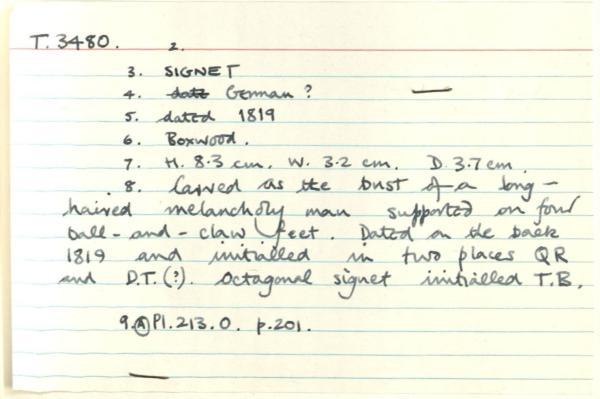 T. 3480. 2.
3. SIGNET
4. date German ?
5. dated 1819
6. Boxwood.
7. H. 8.3 cm. W. 3.2 cm. D. 3.7 cm.
8. Carved as the bust of a long-
haired melancholy man supported on four
ball-and-claw feet. Dated on the back
1819 and initialled in two places QR
and D.T.(?). Octagonal signet initialled T.B.
9. A Pl. 213. O. p. 201.